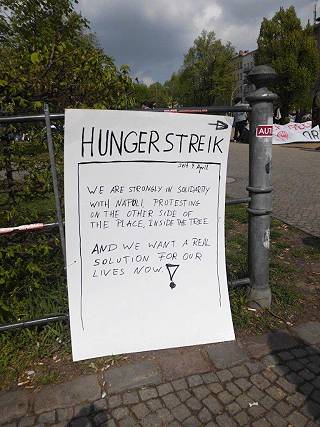 HUNGERSTREIK
seit 9 April
WE ARE STRONGLY IN SOLIDARITY
WITH NAPOLI, PROTESTING
ON THE OTHER SIDE OF
THE PLACE, INSIDE THE TREE
AND WE WANT A REAL
SOLUTION FOR OUR
LIVES NOW!
AUT